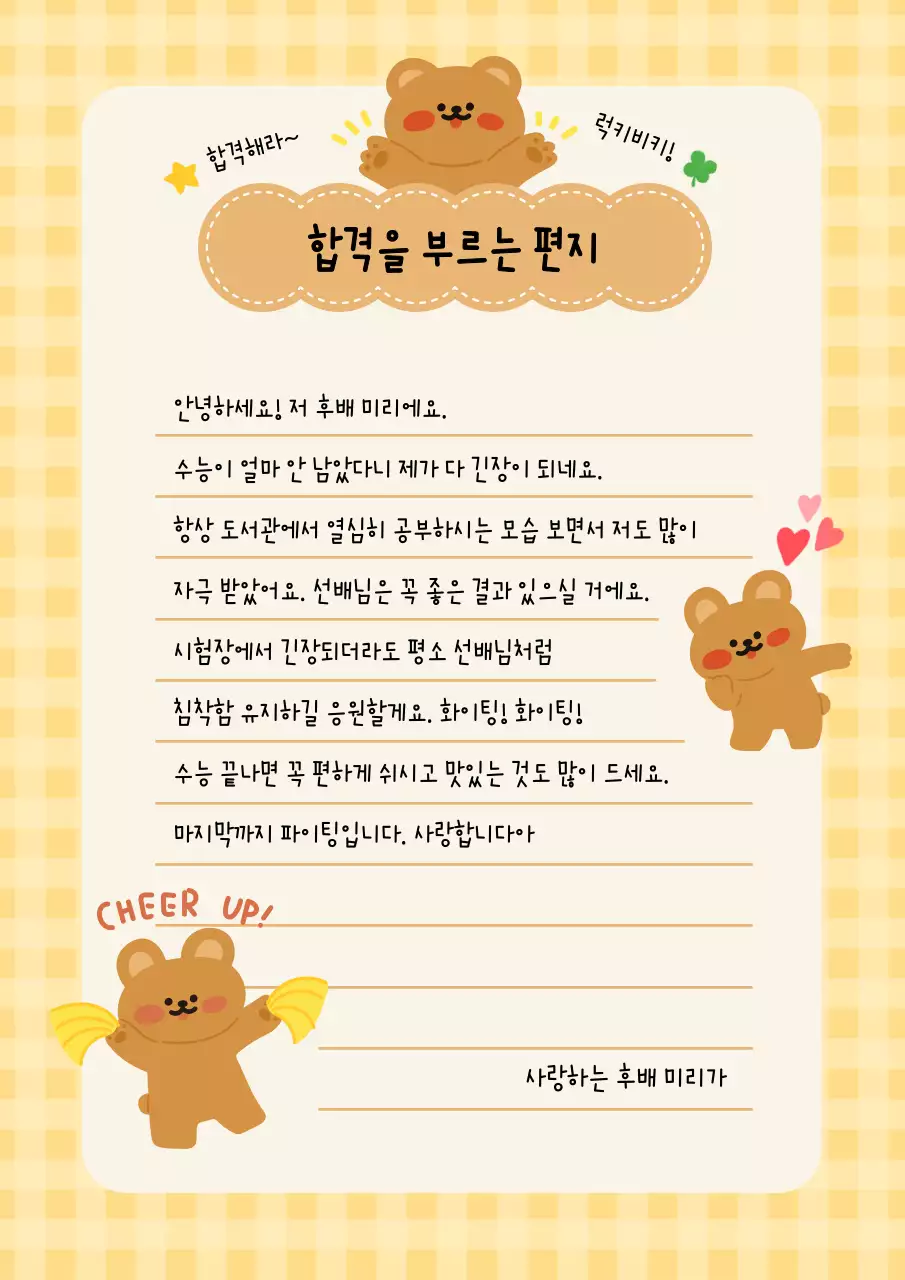 합격해라~
럭키비키!
합격을 부르는 편지
안녕하세요! 저 후배 미리에요.
수능이 얼마 안 남았다니 제가 다 긴장이 되네요.
항상 도서관에서 열심히 공부하시는 모습 보면서 저도 많이
자극 받았어요. 선배님은 꼭 좋은 결과 있으실 거에요.
시험장에서 긴장되더라도 평소 선배님처럼
침착함 유지하길 응원할게요. 화이팅! 화이팅!
수능 끝나면 꼭 편하게 쉬시고 맛있는 것도 많이 드세요.
마지막까지 파이팅입니다. 사랑합니다아
CHEER UP!
사랑하는 후배 미리가